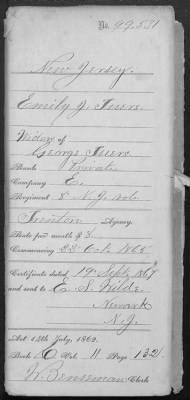 No. 99,531
New Jersey.
Emily J.
Widow of
George
Rank Private
Company E.
Regiment 8 N.J. Vols
Trenton Agency.
Rate per month $ 8.
Commencing 23 Oct 1865
Certificate dated 19 Sept 1867
and sent to E. S. Wilde
Newark
N.J.
Act 14th July, 1862.
Book O Vol. 11 Page 132
Clerk